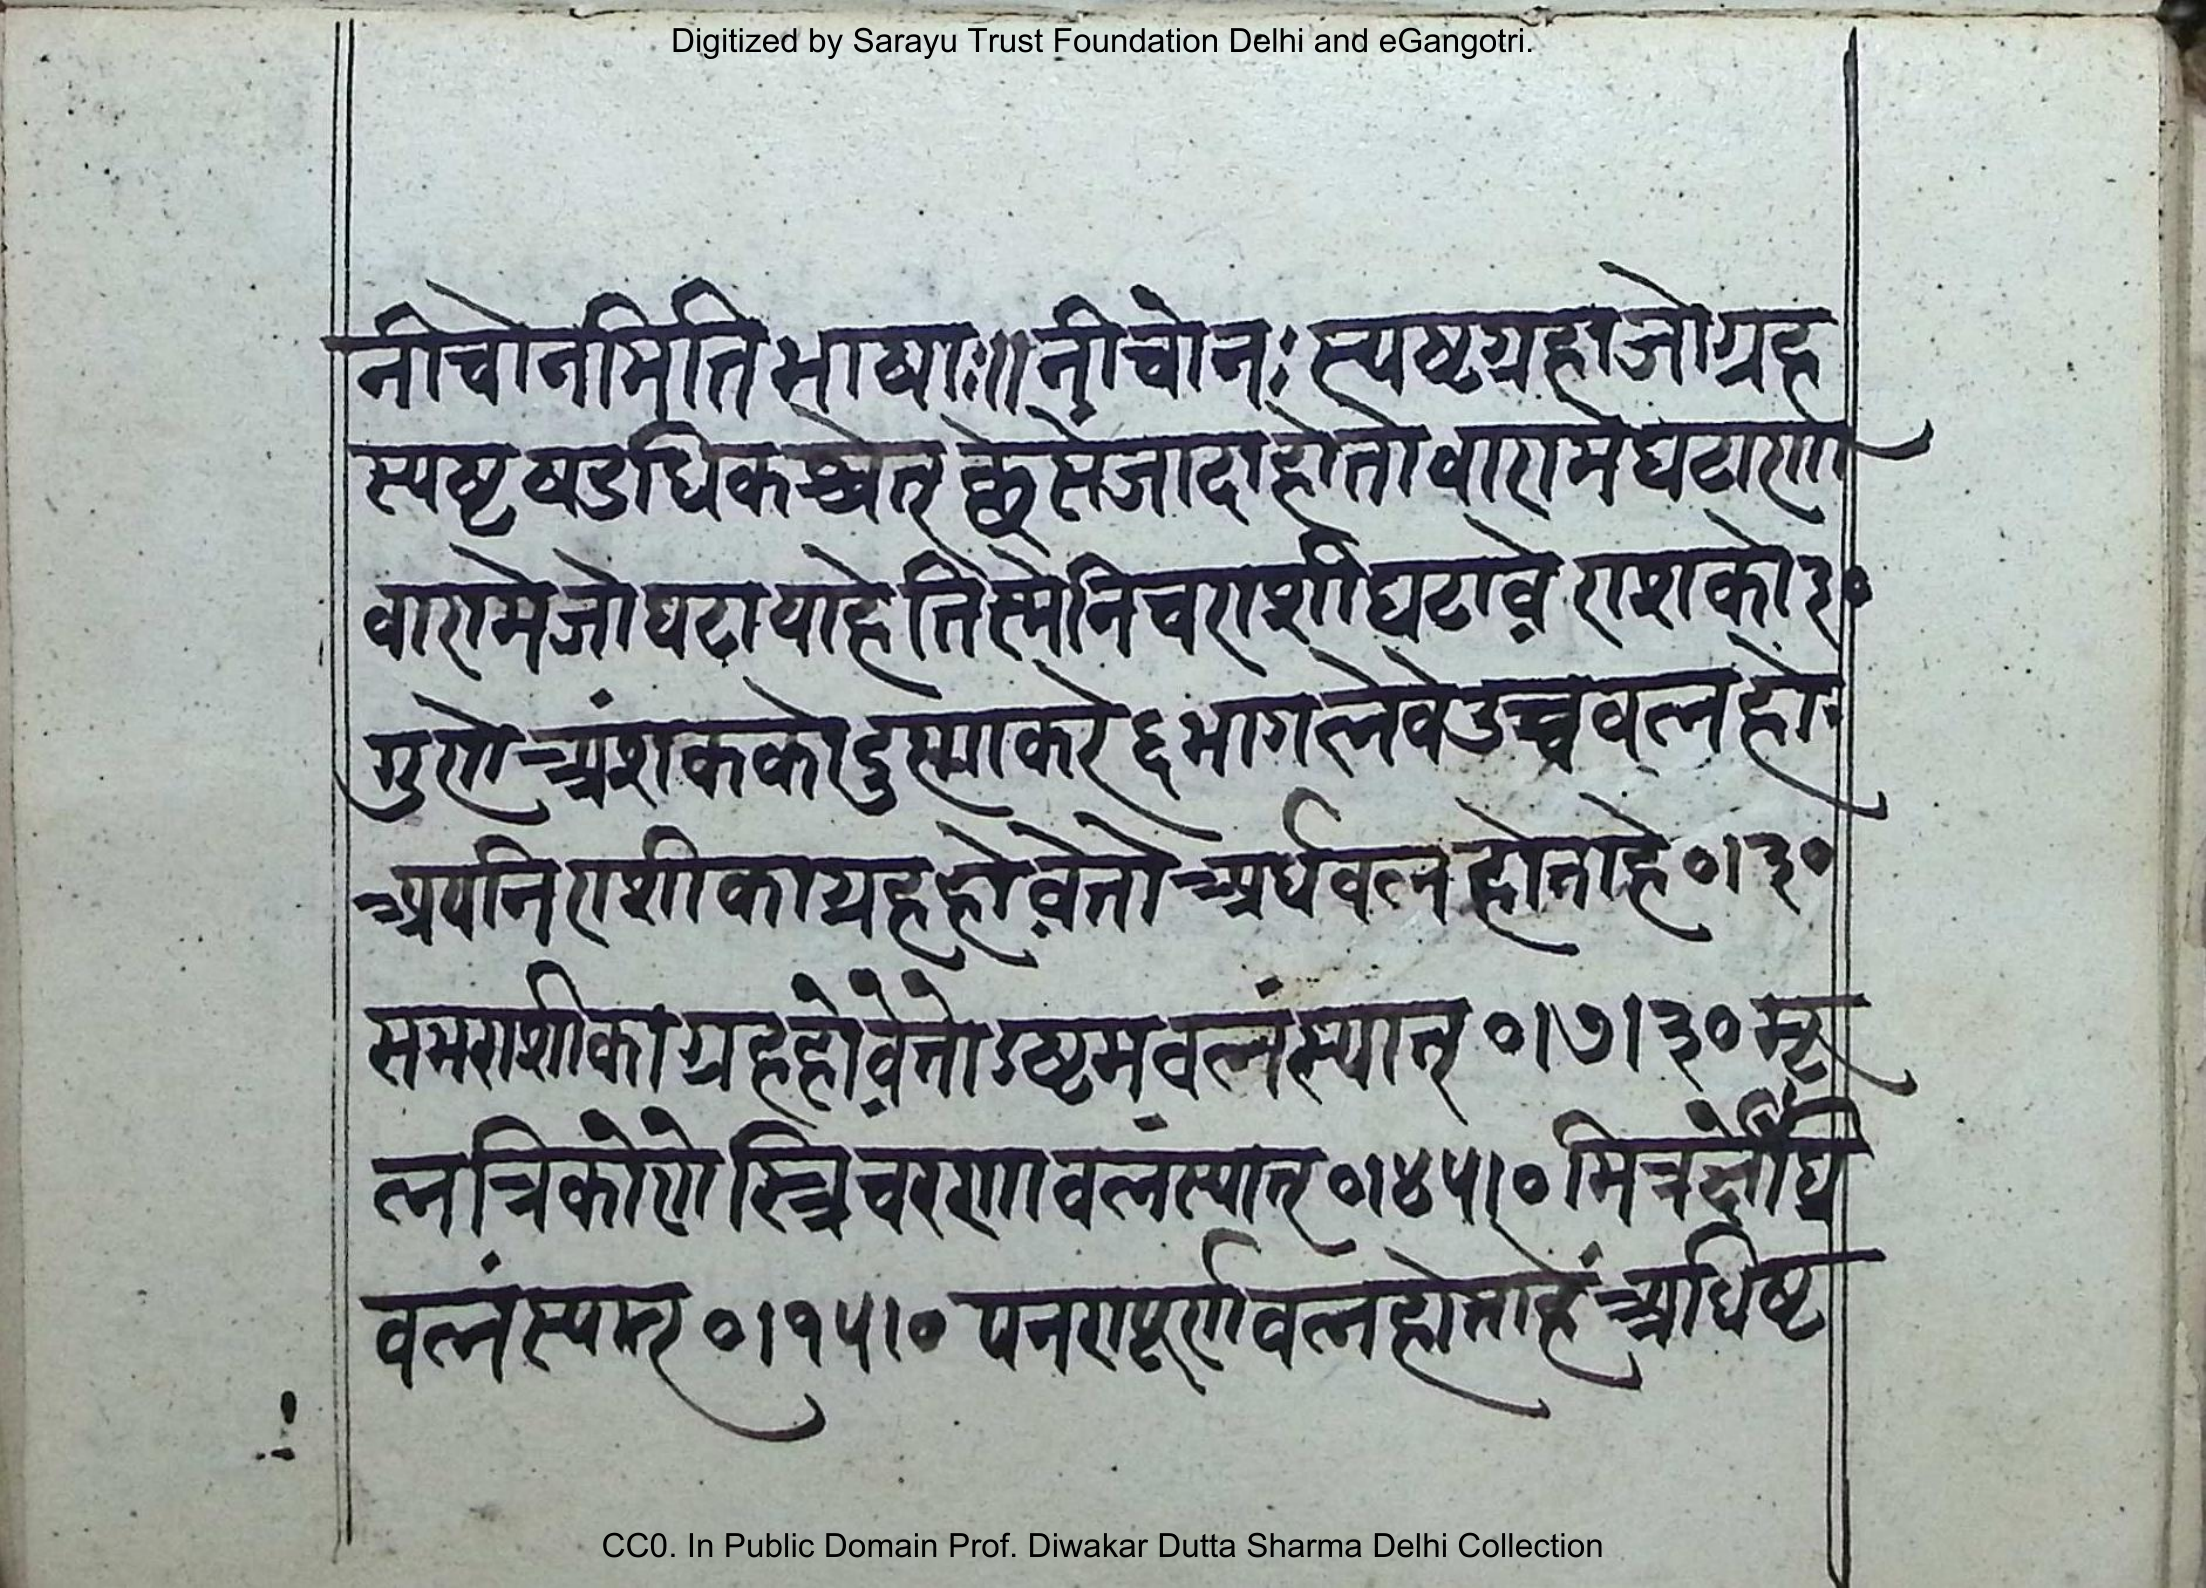 Digitized by Sarayu Trust Foundation Delhi and eGangotri.
नीचोनमिति भाष्याः॥ नीचोनः स्यष्टग्रहाजोग्रह
स्यष्ट षडधिकश्चेत् छेसेजादाहोतोवारामेघटाणा
वारामेजोघटायाहेतिस्मेनिचराशीघटावे राशको३०
गुणे अंशककोदुस्माकरे ६ भागलेवेउच्चवलहो
अपनिराशीकाग्रहहोवेतो अर्धवलहोताहे ०।३०
समराशीकाग्रहहोवेतोऽष्टमवलंस्यात् ०।७।३० मू
लत्रिकोणे स्त्रिचरणवलंस्यात् ०।४५।० मित्रर्क्षेंघ्रि
वलंस्यात् ०।१५।० पनरापूर्णवलहोताहें अधिष्ट
CC0. In Public Domain Prof. Diwakar Dutta Sharma Delhi Collection